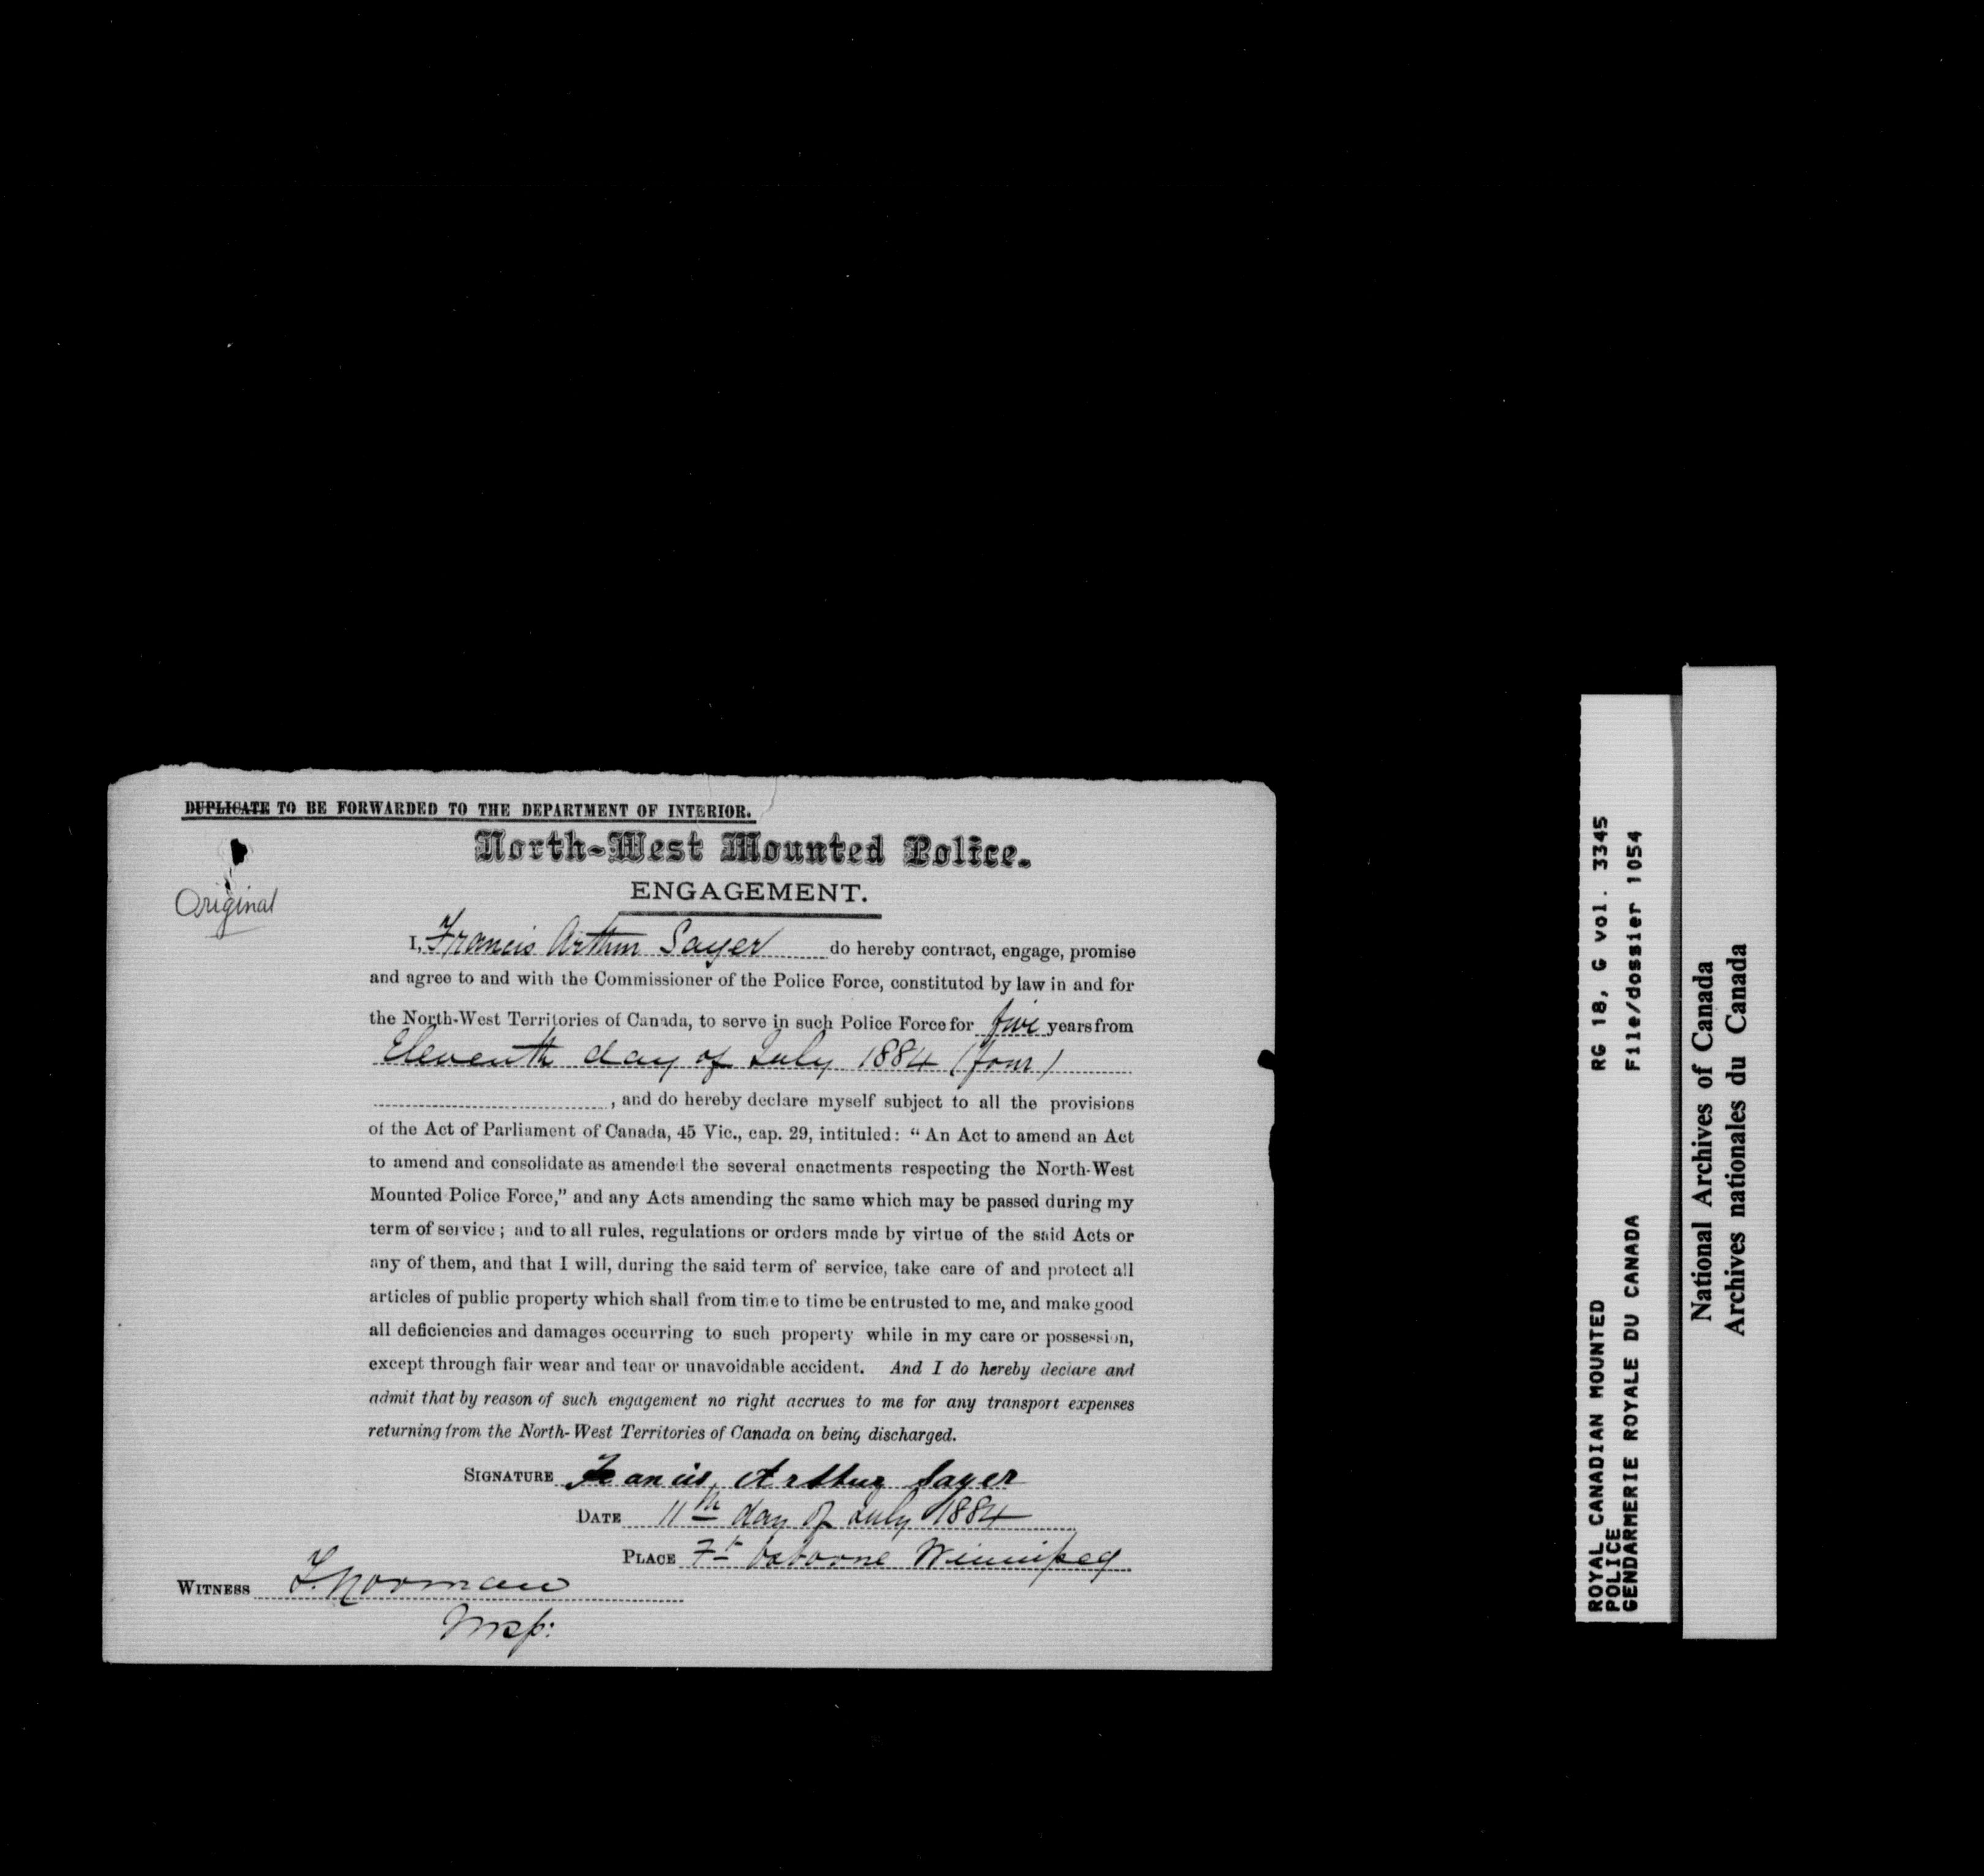 DUPLICATE TO BE FORWARDED TO THE DEPARTMENT OF INTERIOR.
North-West Mounted Police.
Original
ENGAGEMENT.
I, Francis Arthur Sayer do hereby contract, engage, promise
and agree to and with the Commissioner of the Police Force, constituted by law in and for
the North-West Territories of Canada, to serve in such Police Force for five years from
Eleventh day of July 1884 (four)
, and do hereby declare myself subject to all the provisions
of the Act of Parliament of Canada, 45 Vic., cap. 29, intituled: “ An Act to amend an Act
to amend and consolidate as amended the several enactments respecting the North-West
Mounted Police Force,” and any Acts amending the same which may be passed during my
term of service ; and to all rules, regulations or orders made by virtue of the said Acts or
any of them, and that I will, during the said term of service, take care of and protect all
articles of public property which shall from time to time be entrusted to me, and make good
all deficiencies and damages occurring to such property while in my care or possession,
except through fair wear and tear or unavoidable accident. And I do hereby declare and
admit that by reason of such engagement no right accrues to me for any transport expenses
returning from the North-West Territories of Canada on being discharged.
SIGNATURE Francis Arthur Sayer
DATE 11th day of July 1884
PLACE Ft Osborne Winnipeg
WITNESS F. Norman
Insp:
ROYAL CANADIAN MOUNTED RG 18, G vol. 3345
POLICE
GENDARMERIE ROYALE DU CANADA File/dossier 1054
National Archives of Canada
Archives nationales du Canada